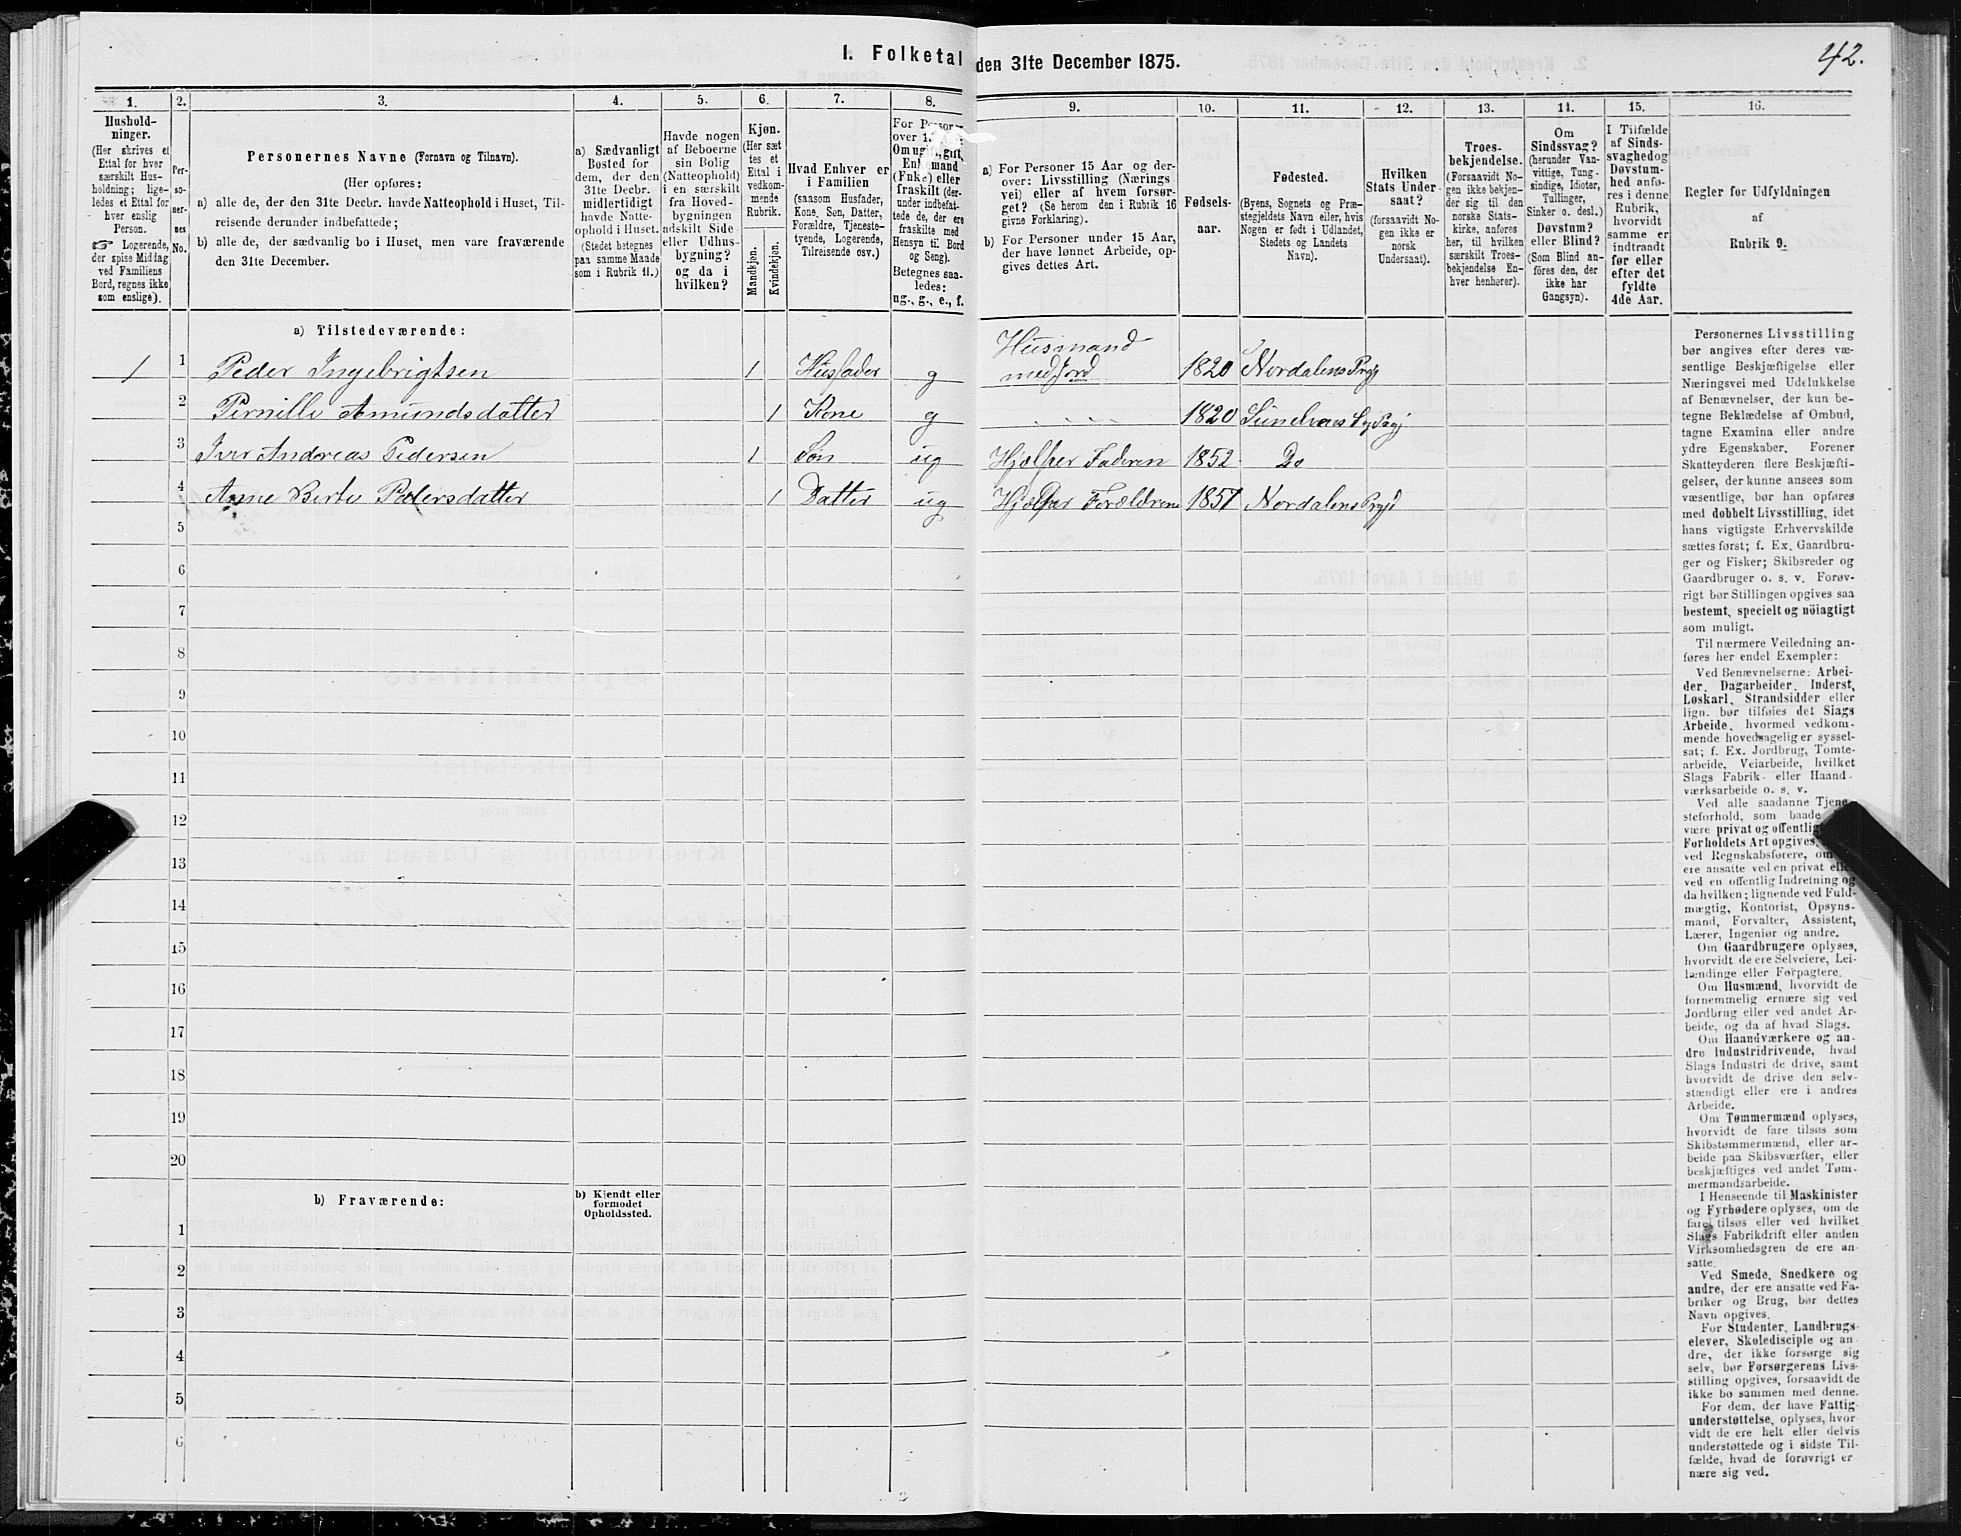 I. Folketal den 31te December 1875.
42.
1.
2.
3.
4.
5.
6.
7.
8.
9.
10.
11.
12.
13.
14.
15.
16.
Hushold-
ninger.
(Her skrives et
Ettal for hver
særskilt Hus-
holdning; lige-
ledes et Ettal for
hver enslig
Person.
☞ Logerende,
der spise Middag
ved Familiens
Bord, regnes ikke
som enslige).
Per-
so-
ner-
nes
No.
Personernes Navne (Fornavn og Tilnavn).
(Her opføres:
a) alle de, der den 31te Decbr. havde Natteophold i Huset, Til-
reisende derunder indbefattede;
b) alle de, der sædvanlig bo i Huset, men vare fraværende
den 31te December.
a) Sædvanligt
Bosted for
dem, der den
31te Decbr.
midlertidigt
havde Natte-
ophold i Huset.
(Stedet betegnes
paa samme Maade
som i Rubrik 11.)
Havde nogen
af Beboerne
sin Bolig
(Natteophold)
i en særskilt
fra Hoved-
bygningen
adskilt Side-
eller Udhus-
bygning?
og da i
hvilken?
Kjøn.
(Her sæt-
tes et
Ettal i
vedkom-
mende
Rubrik.
Mandkjøn.
Kvindekjøn.
Hvad Enhver er
i Familien
(saasom Husfader,
Kone, Søn, Datter,
Forældre, Tjeneste-
tyende, Logerende,
Tilreisende osv.)
For Personer
over 1
Om ugift, gift,
Enkemand
(Enke) eller
fraskilt (der-
under indbefat-
tede de, der ere
fraskilte med
Hensyn til Bord
og Seng).
Betegnes saa-
ledes:
ug., g., e., f.
a) For Personer 15 Aar og der-
over: Livsstilling (Nærings
vei) eller af hvem forsør-
get? (Se herom den i Rubrik 16
givne Forklaring).
b) For Personer under 15 Aar,
der have lønnet Arbeide, op-
gives dettes Art.
Fødsels-
aar.
Fødested.
(Byens, Sognets og Præ-
stegjeldets Navn eller, hvis
Nogen er født i Udlandet,
Stedets og Landets
Navn).
Hvilken
Stats Under-
saat?
(forsaavidt No-
gen ikke er
norsk
Undersaat).
Troes-
bekjendelse.
(Forsaavidt No-
gen ikke bekjen-
der sig til den
norske Stats-
kirke, anføres
her, til hvilken
særskilt Troes-
bekjendelse En-
hver henhører).
Om
Sindssvag?
(herunder Van-
vittige, Tung-
sindige, Idioter,
Tullinger,
Sinker o. desl.)
Døvstum?
eller Blind?
(Som Blind an-
føres den, der
ikke har
Gangsyn).
I Tilfælde
af Sinds-
svaghed og
Døvstum-
hed anfø-
res i denne
Rubrik,
hvorvidt
samme er
indtraadt
før eller
efter det
fyldte
4de Aar.
Regler for Udfyldningen
af
Rubrik 9.
a) Tilstedeværende:
1 1 Peder Ingebrigtsen 1 Husfader g Husmand med Jord 1820 Nordalens Prgj
2 Pernille Amundsdatter 1 Kone g 1820
3 Iver Andreas Pedersen 1 Søn ug Hjelper Faderen 1852 Do
4 Anne Berte Pedersdatter 1 Datter ug Hjelper Forældrene 1857 Nordalens Prgjd
5
6
7
8
9
10
11
12
13
14
15
16
17
18
19
20
b) Fraværende:
b) Kjendt eller
formodet
Opholdssted.
1
2
3
4
5
6
Personernes Livsstilling
bør angives efter deres væ-
sentlige Beskjæftigelse eller
Næringsvei med Udelukkelse
af Benævnelser, der kun be-
tegne Beklædelse af Ombud,
tagne Examina eller andre
ydre Egenskaber. Forener
Skatteyderen flere Beskjæfti-
gelser, der kunne ansees som
væsentlige, bør han opføres
med dobbelt Livsstilling, idet
hans vigtigste Erhvervskilde
sættes først; f. Ex. Gaardbru-
ger og Fisker; Skibsreder og
Gaardbruger o. s. v. Forøv-
rigt bør Stillingen opgives saa
bestemt, specielt og nöiagtigt
som muligt.
Til nærmere Veiledning an-
føres her endel Exempler:
Ved Benævnelserne: Arbei-
der, Dagarbeider, Inderst,
Løskarl, Strandsidder eller
lign. bør tilføies det Slags
Arbeide, hvormed vedkom-
mende hovedsagelig er syssel-
sat; f. Ex. Jordbrug, Tomte-
arbeide, Veiarbeide, hvilket
Slags Fabrik- eller Haand-
værksarbeide o. s. v.
Ved alle saadanne Tjene-
steforhold, som baade
være privat og offentlig
Forholdets Art opgives,
ved Regnskabsførere, om
ere ansatte ved en privat eller
ved en offentlig Indretning og
da hvilken; lignende ved Fuld-
mægtig, Kontorist, Opsyns-
mand, Forvalter, Assistent,
Lærer, Ingeniør og andre.
Om Gaardbrugere oplyses,
hvorvidt de ere Selveiere, Lei-
lændinge eller Forpagtere.
Om Husmænd, hvorvidt de
fornemmelig ernære sig ved
Jordbrug eller ved andet Ar-
beide, og da af hvad Slags.
Om Haandværkere og an-
dre Industridrivende, hvad
Slags Industri de drive, samt
hvorvidt de drive den selv-
stændigt eller ere i andres
Arbeide.
Om Tømmermænd oplyses,
hvorvidt de fare tilsøs som
Skibstømmermænd, eller ar-
beide paa Skibsværfter, eller
beskjæftiges ved andet Tøm-
mermandsarbeide.
I Henseende til Maskinister
og Fyrbødere oplyses, om de
fare tilsøs eller ved hvilket
Slags Fabrikdrift eller anden
Virksomhedsgren de ere an-
satte.
Ved Smede, Snedkere og
andre, der ere ansatte ved Fa-
briker og Brug, bør dettes
Navn opgives.
For Studenter, Landbrugs-
elever, Skoledisciple og an-
dre, der ikke forsørge sig
selv, bør Forsørgerens Livs-
stilling opgives, forsaavidt de
ikke bo sammen med denne.
For dem, der have Fattig-
understøttelse, oplyses, hvor-
vidt de ere helt eller delvis
understøttede og i sidste Til-
fælde, hvad de forøvrigt er
nære sig ved.